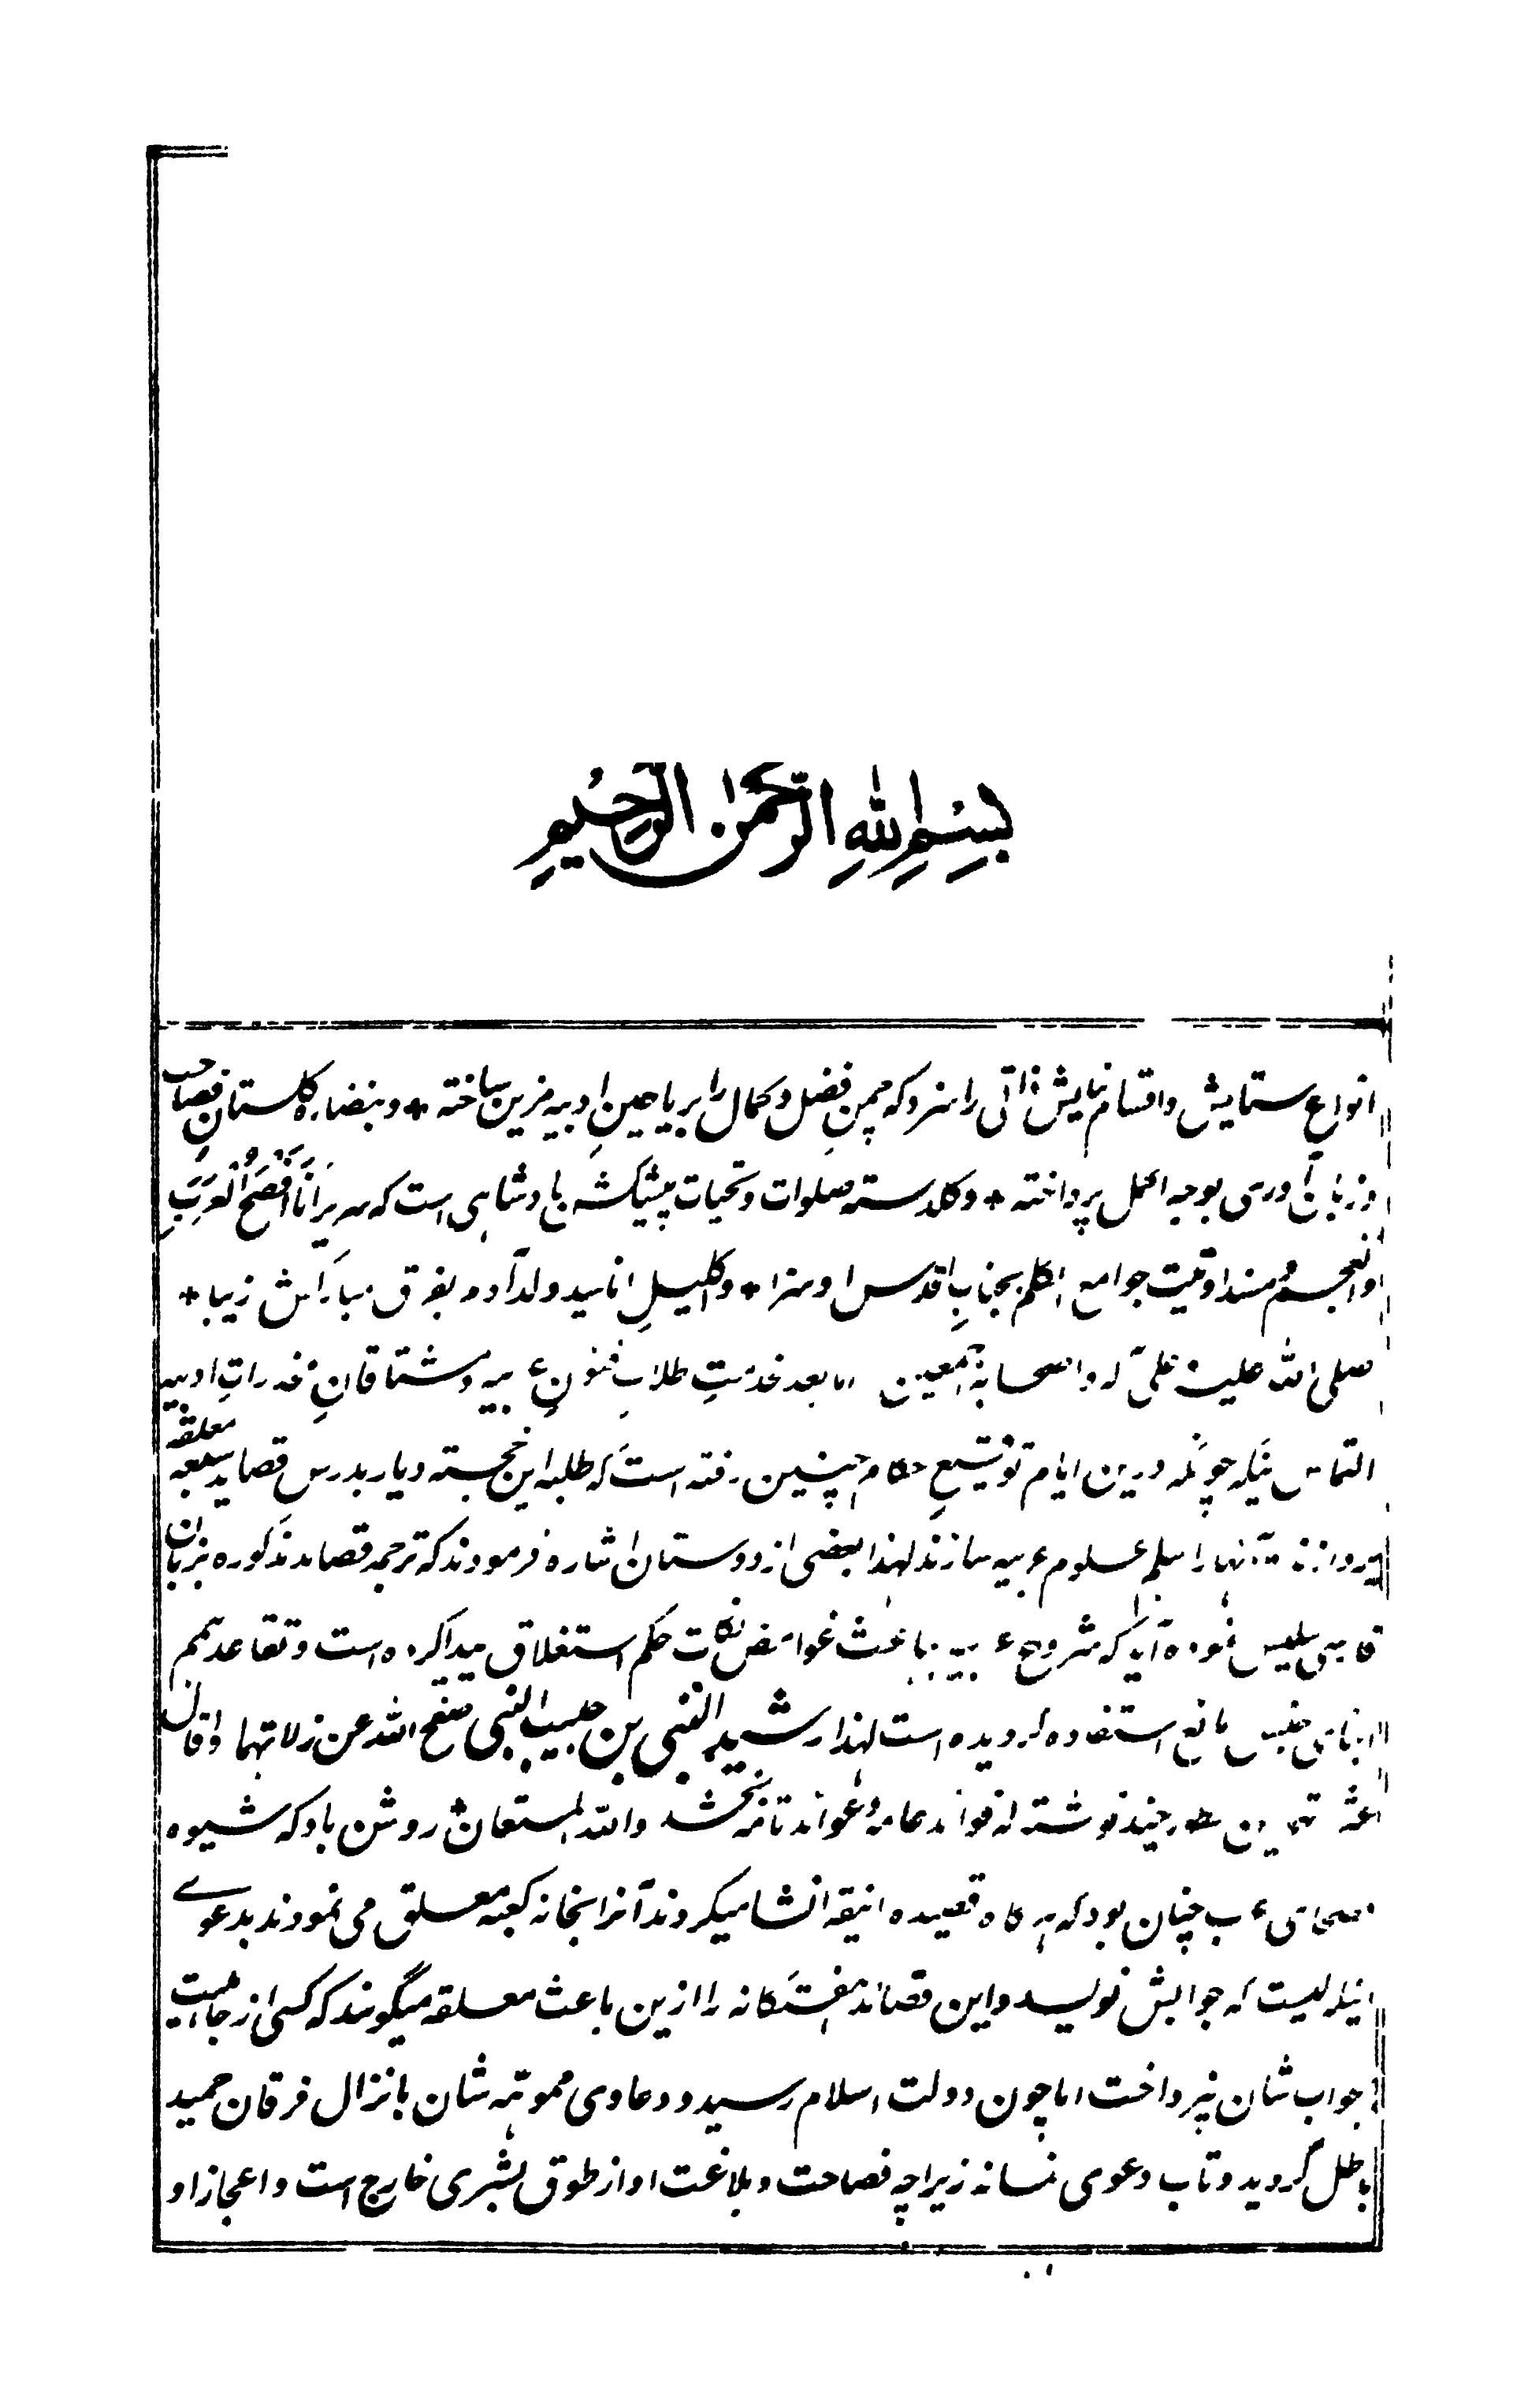 بِسْمِ اللهِ الرَّحْمٰنِ الرَّحِيْمِ
انواعِ ستایش و اقسام نیایش ذاتی را سزد که چمنِ فضل و کمال را بریاحینِ ادبیه مزین ساخته * و بنضاره گلستانِ فصاحت
و زبان آوری بوجه اکمل پرداخته * و گلدسته صلوات و تحیات پیشکش بادشاهی است که سریر اَنَا اَفْصَحُ الْعَرَبِ
والعجم و مسند اوتیت جوامع الکلم بجنابِ اقدس او سزا * و اکلیلِ انا سید ولد آدم بفرق مبارکش زیبا *
صلی الله علیه و علی آله و اصحابه اجمعین اما بعد خدمتِ طلابِ فنونِ عربیه و مشتاقانِ مخدراتِ ادبیه
التماس اینکه چونکه درین ایام توشیع حکام چنین رفته است که طلبه این خجسته دیار بدرس قصاید سبعه معلقه
پردازند آنها را سلم علوم عربیه سازند لهذا بعضی از دوستان اشاره فرمودند که ترجمه قصاید مذکوره بزبان
فارسی سلیس نموده آید که شروح عربیه بباعث غوامض نکات حکم استغلاق پیدا کرده است و تقاعد همم
ابنای جنس مانع استفاده گردیده است لهذا رشید النبی بن حبیب النبی صفح الله عن زلاتهما و اقال
عثرتهما این سطور چند نوشته که فواید عامه و عواید تامه بخشد والله المستعان روشن باد که شیوه
فصحای عرب چنان بود که هرگاه قصیده انیقه انشا میکردند آنرا بخانه کعبه معلق می نمودند بدعوے
اینکه کیست که جوابش نویسد و این قصائد هفتگانه را ازین باعث معلقه میگویند که کسی از جاهلیت
بجواب شان نپرداخت اما چون دولت اسلام رسید و دعاوی مموهه شان بانزال فرقان حمید
باطل گردید و تاب دعوی نمانه زیراچه فصاحت و بلاغت او از طوق بشری خارج است و اعجاز او